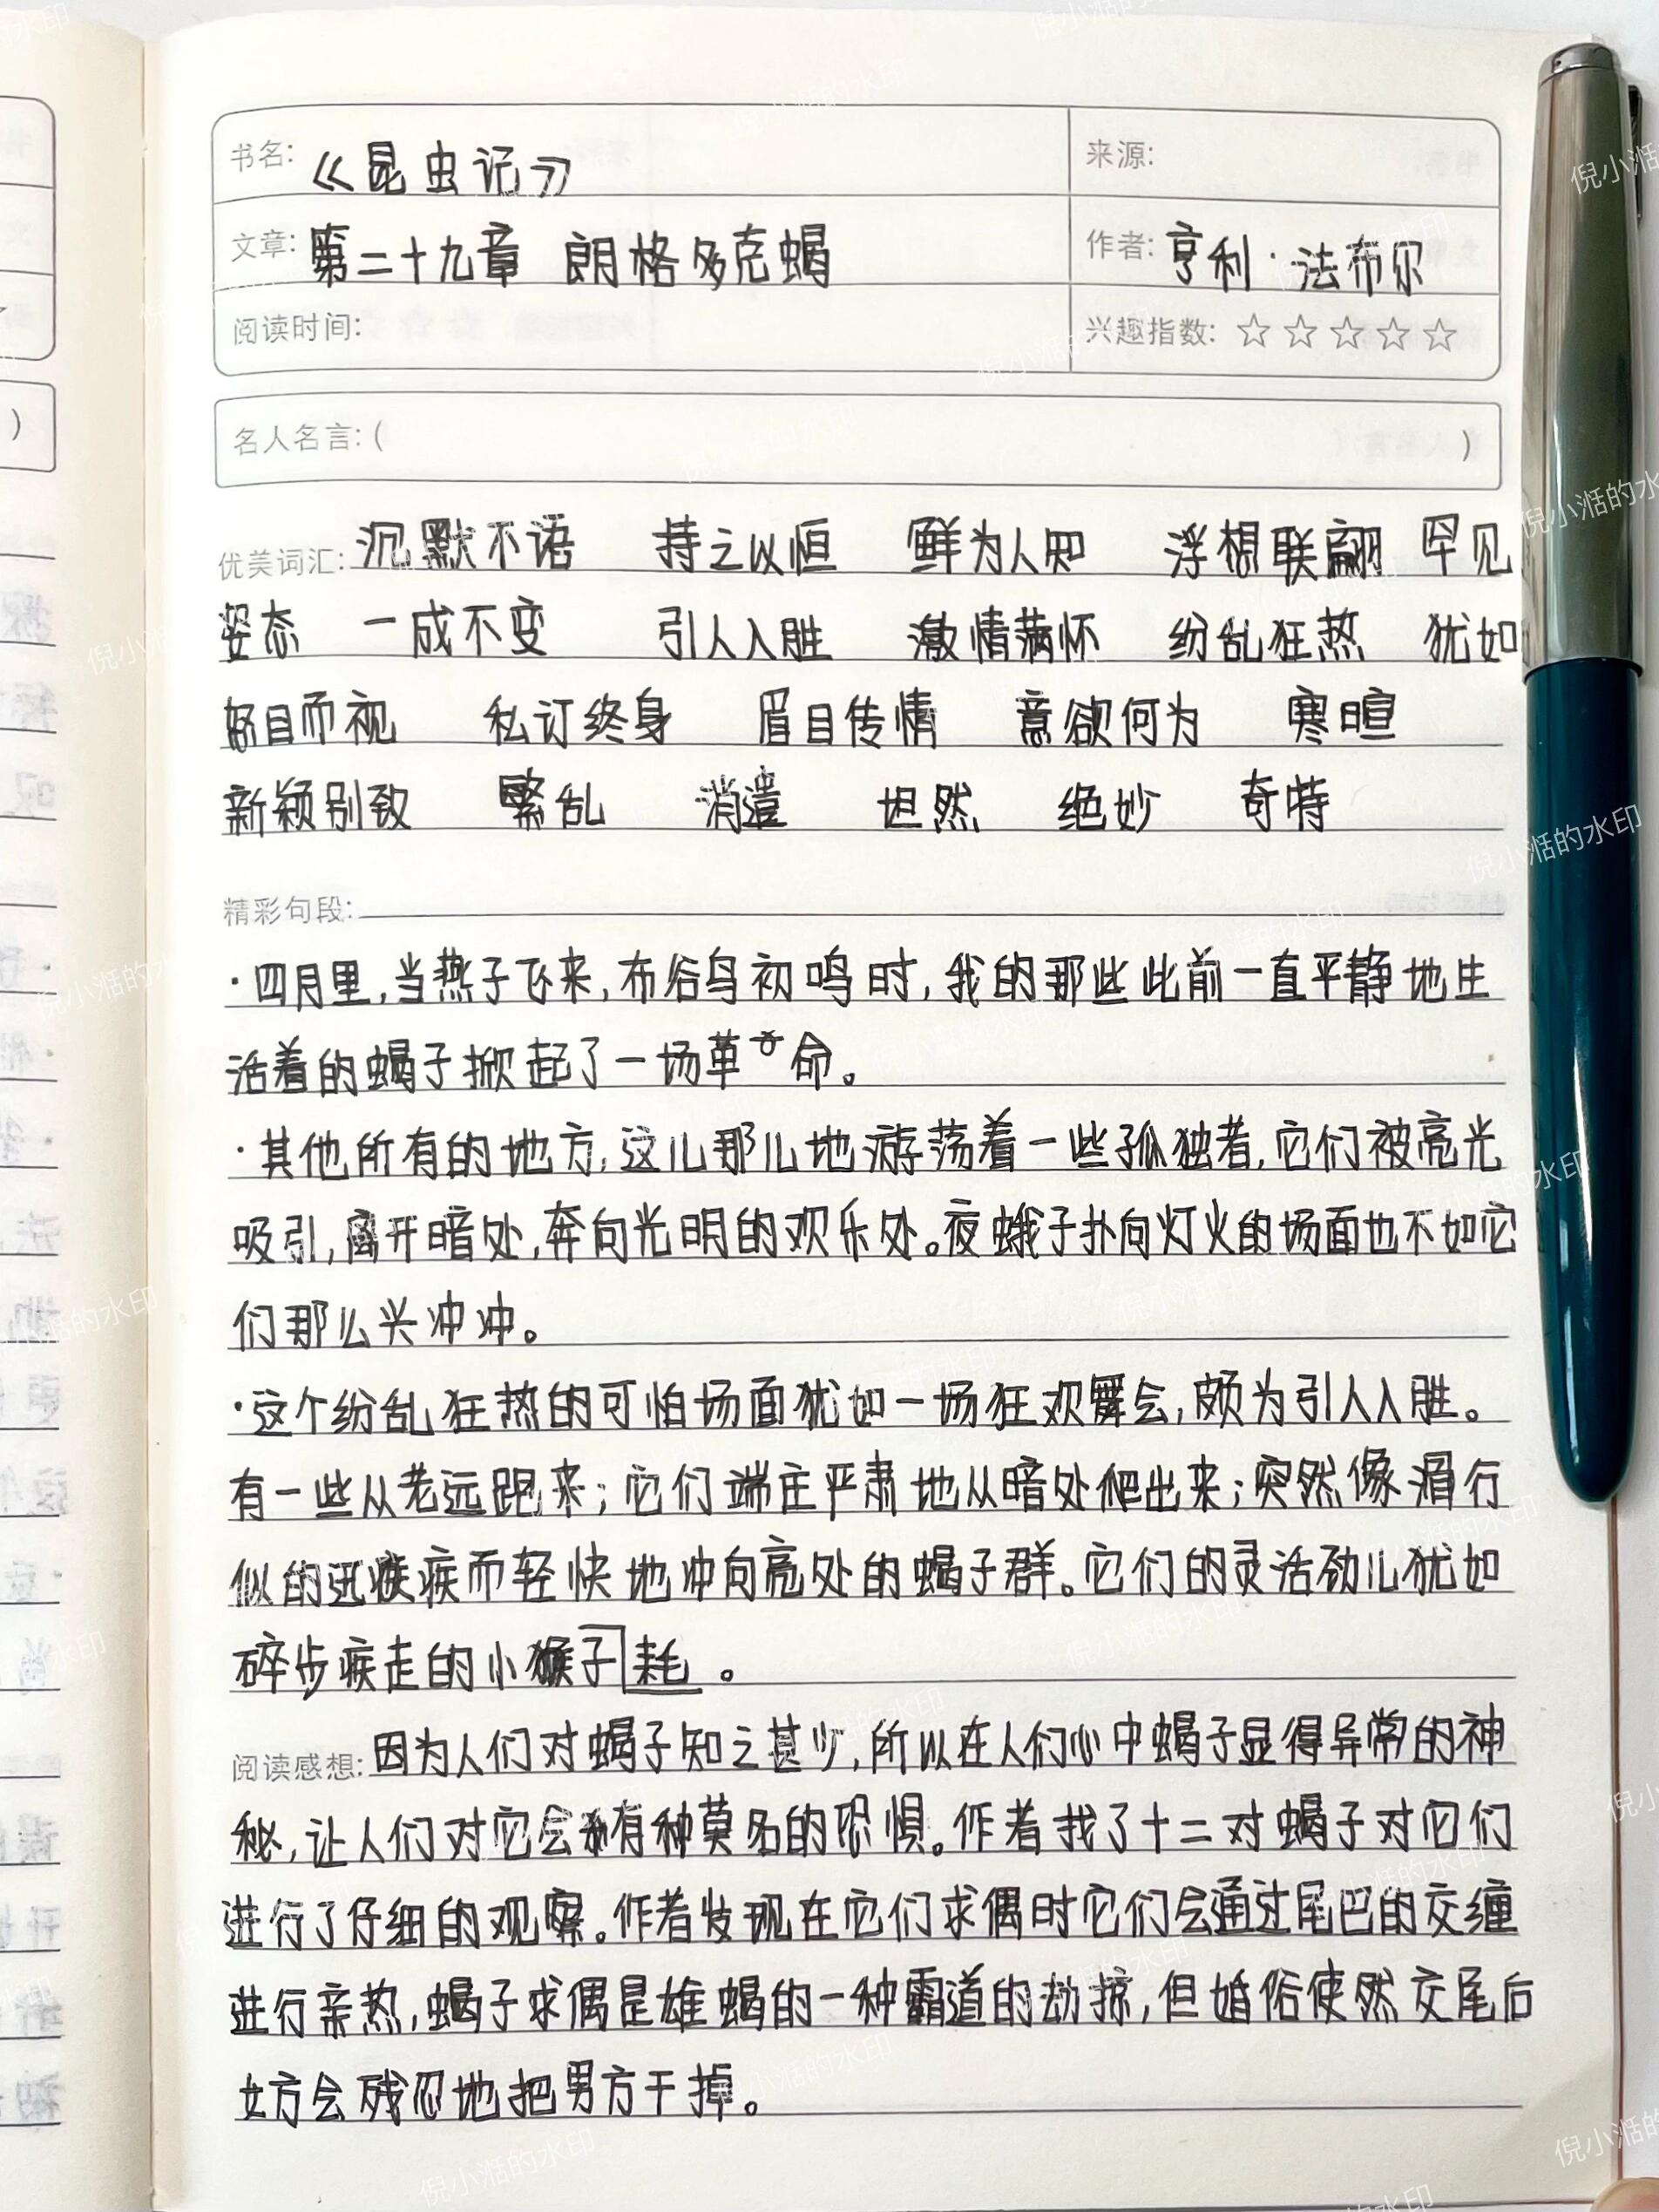 书名: 《昆虫记》 来源:
文章: 第二十九章 朗格多克蝎 作者: 亨利·法布尔
阅读时间: 兴趣指数: ☆☆☆☆☆
名人名言: ( )
优美词汇: 沉默不语 持之以恒 鲜为人知 浮想联翩 罕见
姿态 一成不变 引人入胜 激情满怀 纷乱狂热 犹如
怒目而视 私订终身 眉目传情 意欲何为 寒暄
新颖别致 繁乱 消遣 坦然 绝妙 奇特
精彩句段:
·四月里,当燕子飞来,布谷鸟初鸣时,我的那些此前一直平静地生
活着的蝎子掀起了一场革命。
·其他所有的地方,这儿那儿地游荡着一些孤独者,它们被亮光
吸引,离开暗处,奔向光明的欢乐处。夜蛾子扑向灯火的场面也不如它
们那么兴冲冲。
·这个纷乱狂热的可怕场面犹如一场狂欢舞会,颇为引人入胜。
有一些从老远跑来;它们端庄严肃地从暗处爬出来;突然像滑行
似的迅疾而轻快地冲向亮处的蝎子群。它们的灵活劲儿犹如
碎步疾走的小耗子。
阅读感想: 因为人们对蝎子知之甚少,所以在人们心中蝎子显得异常的神
秘,让人们对它会有种莫名的恐惧。作者找了十二对蝎子对它们
进行了仔细的观察。作者发现在它们求偶时它们会通过尾巴的交缠
进行亲热,蝎子求偶是雄蝎的一种霸道的劫掠,但婚俗使然交尾后
女方会残忍地把男方干掉。
倪小湉的水印